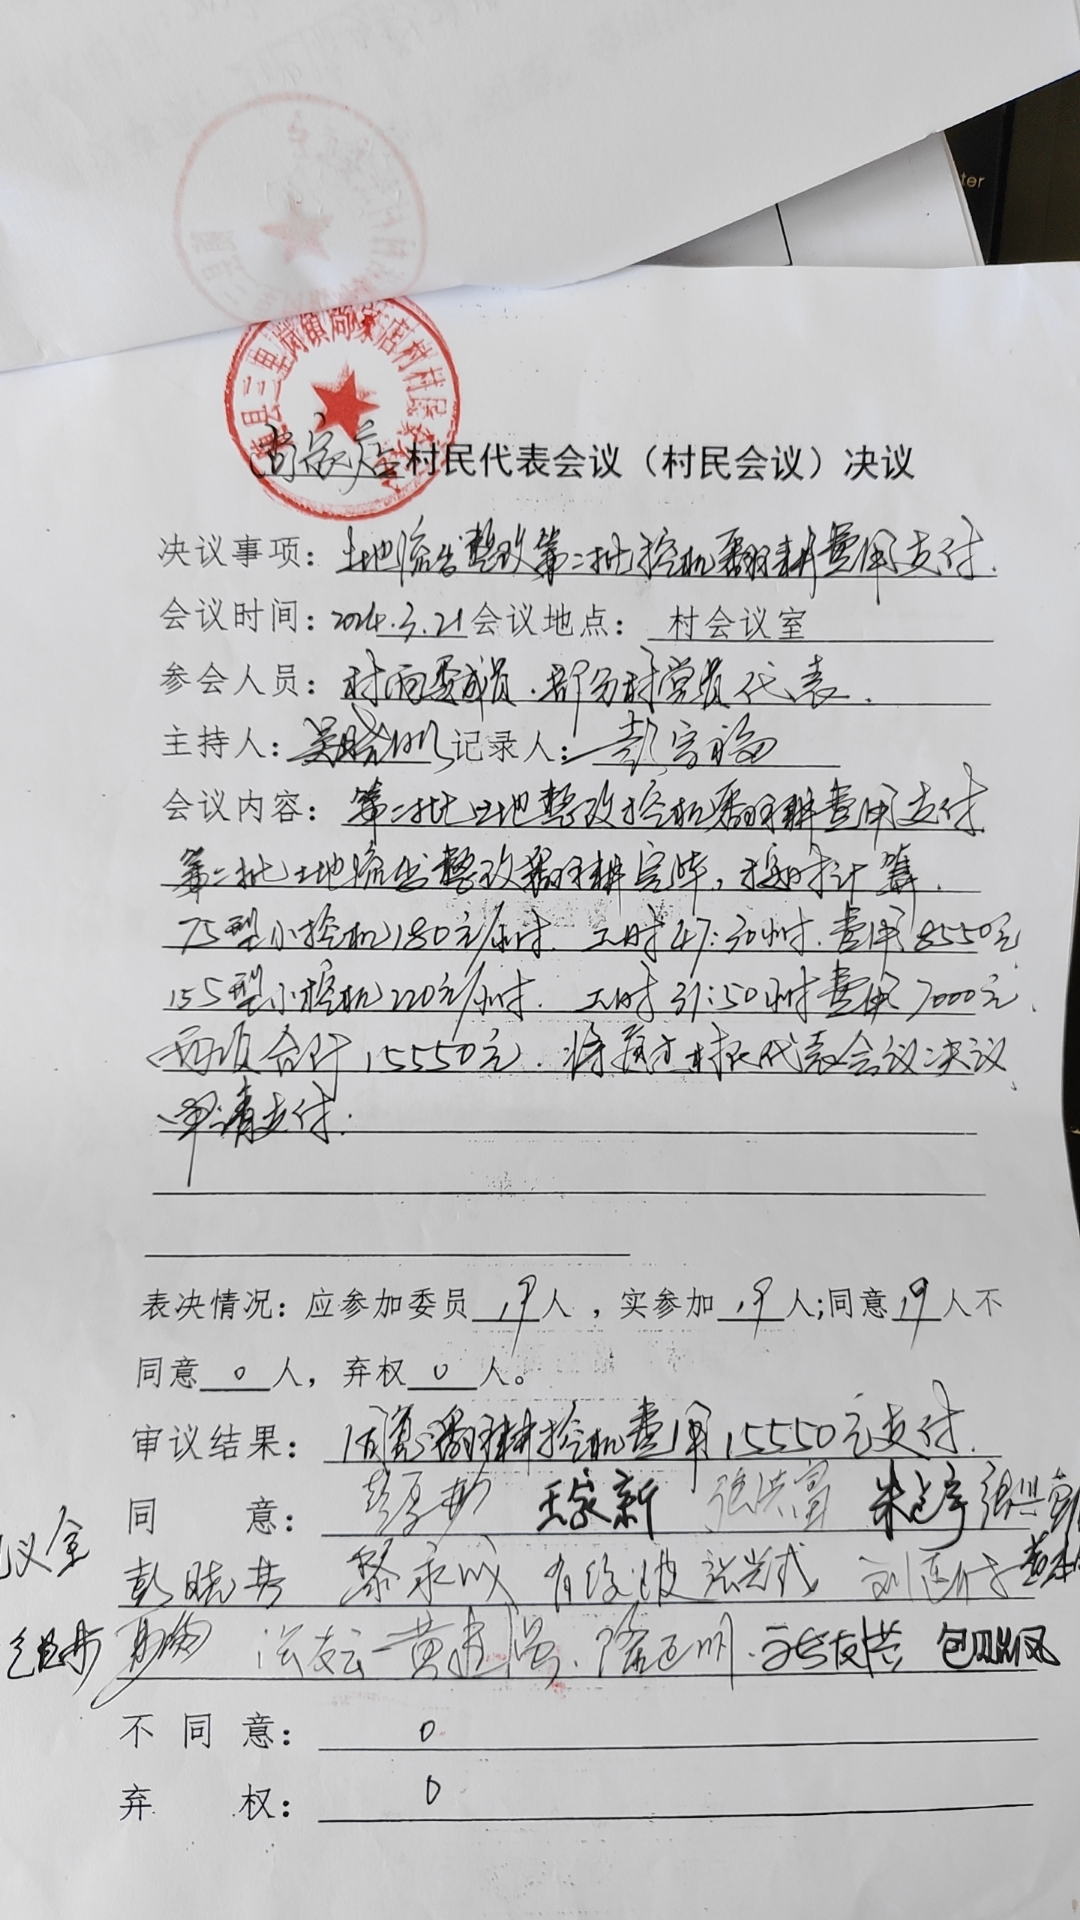 ter
三里岗镇尚家店村村民
尚家店村民代表会议（村民会议）决议
决议事项：土地流出整改第二批挖机翻耕费用支付.
会议时间：2024.3.21会议地点： 村会议室
参会人员：村两委成员.部分村党员代表.
主持人：吴晓帆记录人：彭宗福
会议内容：第二批土地整改挖机翻耕费用支付.
第二批土地流出整改翻耕完毕，按时计算.
75型小挖机180元/小时.工时47:30小时.费用8550元
155型小挖机220元/小时.工时31:50小时费用7000元.
两项合计15550元.将通过村民代表会议决议
申请支付.
表决情况：应参加委员19人，实参加19人;同意19人不
同意0人，弃权0人。
审议结果：同意翻耕挖机费用15550元支付.
同 意： 王家新 张洪富
义全 彭晓 黎永成 张兴武
黄建 包
不同意： 0
弃 权： 0